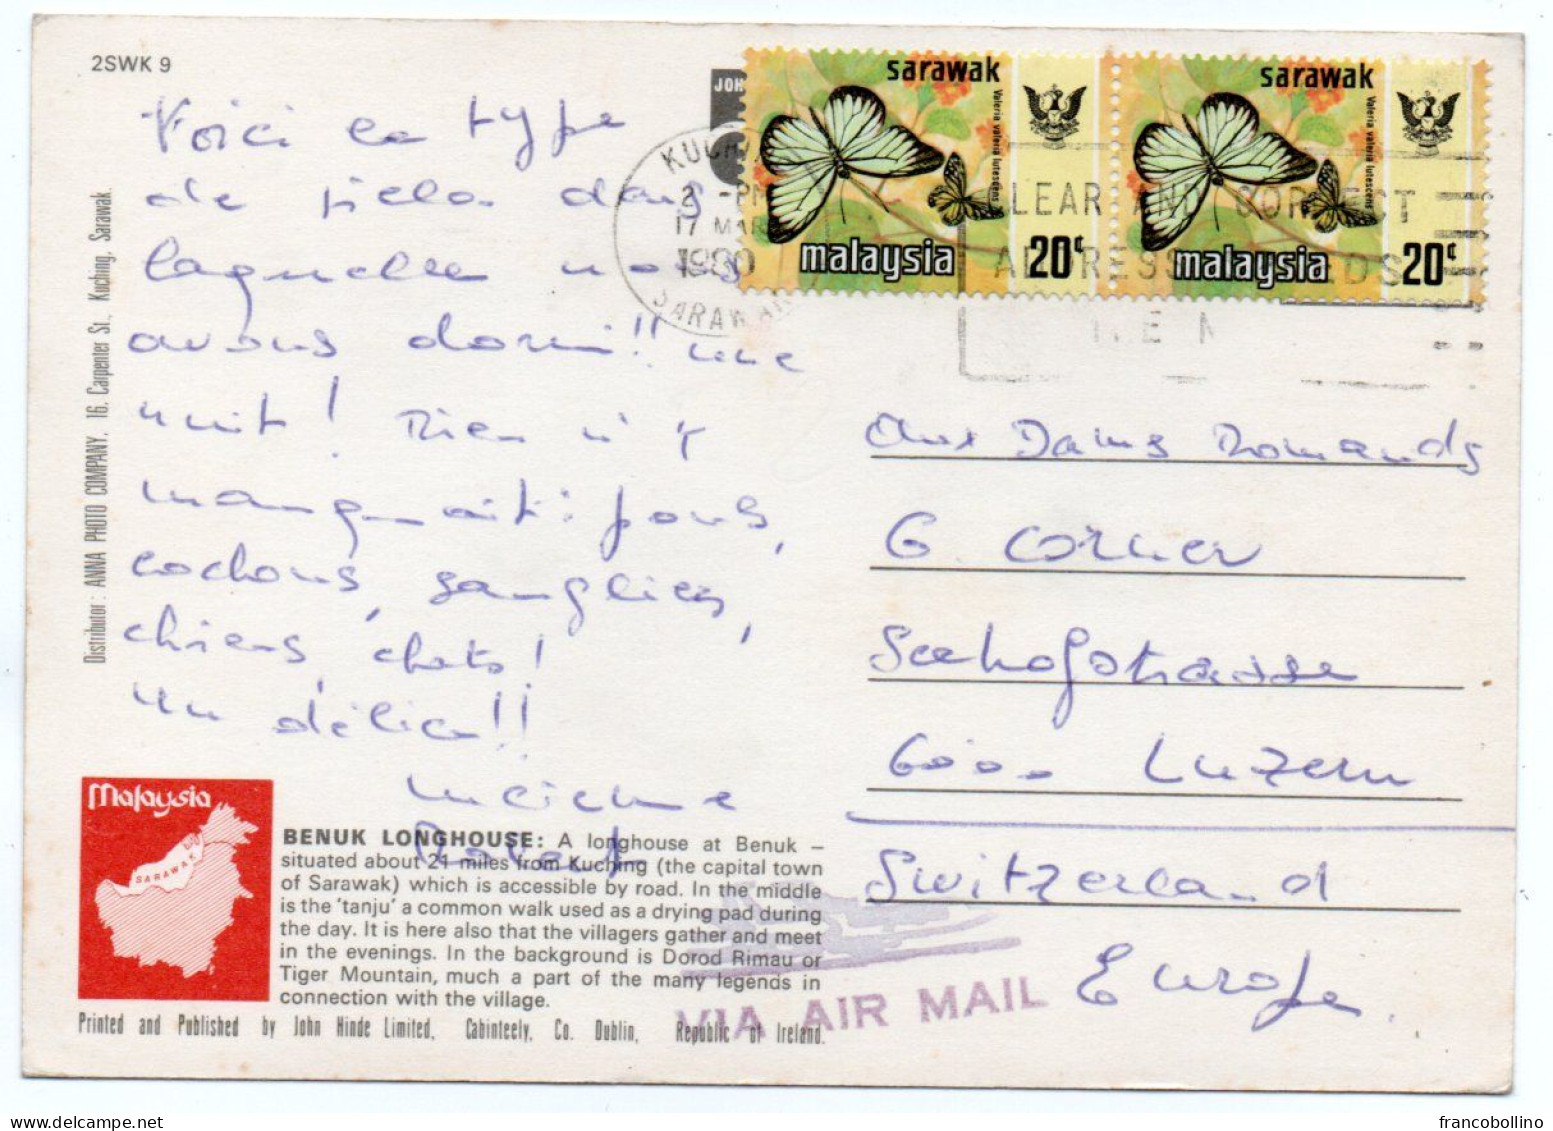 2SWK 9
Voici le type
de pièce dans
laquelle nous
avons dormi!! une
nuit! Rien n'y
manquait: pous,
cochons, sangliers,
chiens, chats!
Un délice!!
Lucienne
Distributor: ANNA PHOTO COMPANY, 16, Carpenter St., Kuching, Sarawak.
Malaysia
SARAWAK
BENUK LONGHOUSE: A longhouse at Benuk –
situated about 21 miles from Kuching (the capital town
of Sarawak) which is accessible by road. In the middle
is the 'tanju' a common walk used as a drying pad during
the day. It is here also that the villagers gather and meet
in the evenings. In the background is Dorod Rimau or
Tiger Mountain, much a part of the many legends in
connection with the village.
Printed and Published by John Hinde Limited, Cabinteely, Co. Dublin, Republic of Ireland.
JOH
KUCH
2 -PM
17 MAR
1980
SARAWAK
sarawak
Valeria valeria lutescens
malaysia
20¢
sarawak
Valeria valeria lutescens
malaysia
20¢
Aux Dames Romands
G. Corner
Seehofstrasse
6000 Luzern
Switzerland
Europe
VIA AIR MAIL
francobollino